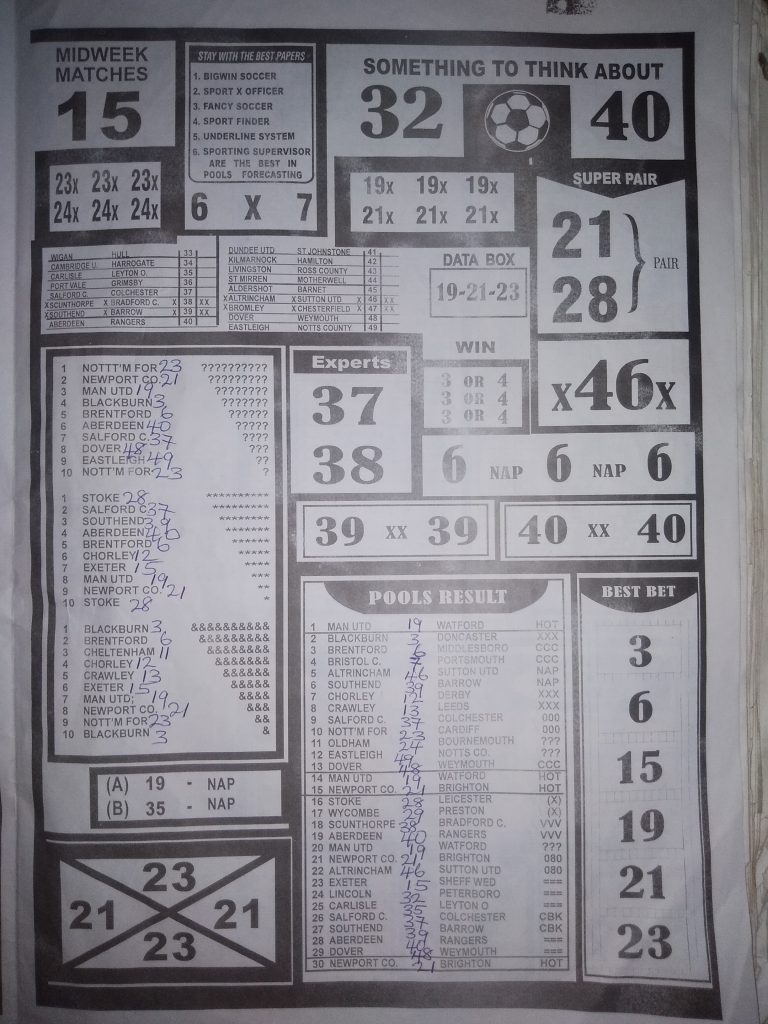 MIDWEEK
MATCHES
15
STAY WITH THE BEST PAPERS
1. BIGWIN SOCCER
2. SPORT X OFFICER
3. FANCY SOCCER
4. SPORT FINDER
5. UNDERLINE SYSTEM
6. SPORTING SUPERVISOR
ARE THE BEST IN
POOLS FORECASTING
6 X 7
SOMETHING TO THINK ABOUT
32 40
23x 23x 23x
24x 24x 24x
19x 19x 19x
21x 21x 21x
SUPER PAIR
21
28
PAIR
WIGAN HULL 33
CAMBRIDGE U. HARROGATE 34
CARLISLE LEYTON O. 35
PORT VALE GRIMSBY 36
SALFORD C. COLCHESTER 37
XSCUNTHORPE X BRADFORD C. X 38 XX
XSOUTHEND X BARROW X 39 XX
ABERDEEN RANGERS 40
DUNDEE UTD ST JOHNSTONE 41
KILMARNOCK HAMILTON 42
LIVINGSTON ROSS COUNTY 43
ST MIRREN MOTHERWELL 44
ALDERSHOT BARNET 45
XALTRINCHAM X SUTTON UTD X 46 XX
XBROMLEY X CHESTERFIELD X 47 XX
DOVER WEYMOUTH 48
EASTLEIGH NOTTS COUNTY 49
DATA BOX
19-21-23
WIN
3 OR 4
3 OR 4
3 OR 4
X46X
Experts
37
38
6 NAP 6 NAP 6
39 XX 39
40 XX 40
1 NOTTT'M FOR 23 ??????????
2 NEWPORT CO. 21 ?????????
3 MAN UTD 19 ????????
4 BLACKBURN 3 ???????
5 BRENTFORD 6 ??????
6 ABERDEEN 40 ?????
7 SALFORD C. 37 ????
8 DOVER 48 ???
9 EASTLEIGH 49 ??
10 NOTT'M FOR 23 ?
1 STOKE 28 **********
2 SALFORD C 37 *********
3 SOUTHEND 39 ********
4 ABERDEEN 40 *******
5 BRENTFORD 6 ******
6 CHORLEY 12 *****
7 EXETER 15 ****
8 MAN UTD 19 ***
9 NEWPORT CO. 21 **
10 STOKE 28 *
1 BLACKBURN 3 &&&&&&&&&&
2 BRENTFORD 6 &&&&&&&&&
3 CHELTENHAM 11 &&&&&&&&
4 CHORLEY 12 &&&&&&&
5 CRAWLEY 13 &&&&&&
6 EXETER 15 &&&&&
7 MAN UTD; 19 &&&&
8 NEWPORT CO. 21 &&&
9 NOTT'M FOR 23 &&
10 BLACKBURN 3 &
(A) 19 - NAP
(B) 35 - NAP
23
21 21
23
POOLS RESULT
1 MAN UTD 19 WATFORD HOT
2 BLACKBURN 3 DONCASTER XXX
3 BRENTFORD 6 MIDDLESBORO CCC
4 BRISTOL C. 7 PORTSMOUTH CCC
5 ALTRINCHAM 46 SUTTON UTD NAP
6 SOUTHEND 39 BARROW NAP
7 CHORLEY 12 DERBY XXX
8 CRAWLEY 13 LEEDS XXX
9 SALFORD C. 37 COLCHESTER 000
10 NOTT'M FOR 23 CARDIFF 000
11 OLDHAM 24 BOURNEMOUTH ???
12 EASTLEIGH 49 NOTTS CO. ???
13 DOVER 48 WEYMOUTH CCC
14 MAN UTD 19 WATFORD HOT
15 NEWPORT CO. 21 BRIGHTON HOT
16 STOKE 28 LEICESTER (X)
17 WYCOMBE 29 PRESTON (X)
18 SCUNTHORPE 38 BRADFORD C. VVV
19 ABERDEEN 40 RANGERS VVV
20 MAN UTD 19 WATFORD ???
21 NEWPORT CO. 21 BRIGHTON 080
22 ALTRINCHAM 46 SUTTON UTD 080
23 EXETER 15 SHEFF WED ===
24 LINCOLN 32 PETERBORO ===
25 CARLISLE 35 LEYTON O ===
26 SALFORD C. 37 COLCHESTER CBK
27 SOUTHEND 39 BARROW CBK
28 ABERDEEN 40 RANGERS ===
29 DOVER 48 WEYMOUTH ===
30 NEWPORT CO. 21 BRIGHTON HOT
BEST BET
3
6
15
19
21
23